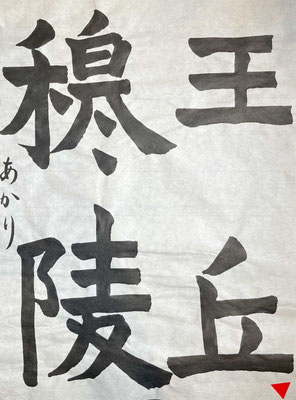 王丘
穆陵
あかり